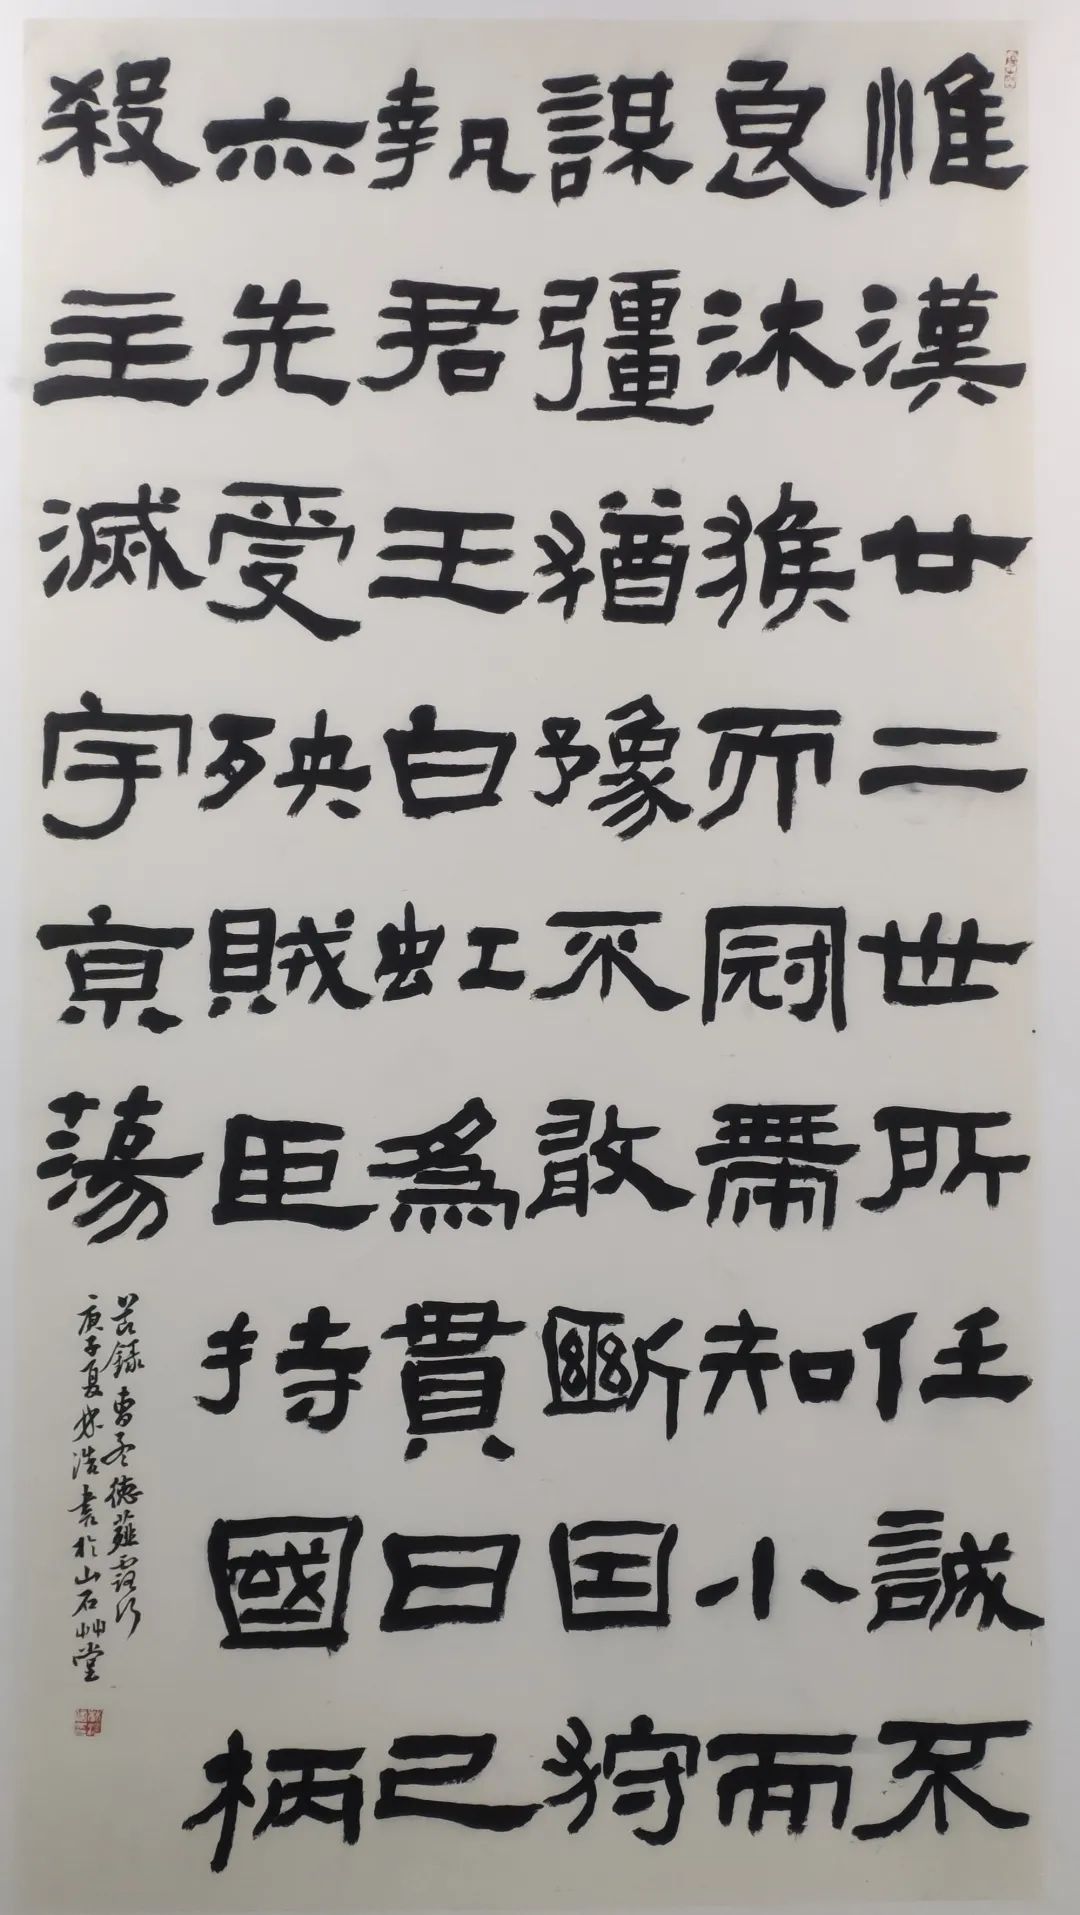 惟漢廿二世所任誠不
良沐猴而冠帶知小而
謀彊猶豫不敢斷因狩
執君王白虹爲貫日己
亦先受殃賊臣持國柄
殺主滅宇京蕩
节録曹孟德薤露行
庚子夏浩書於山石艸堂